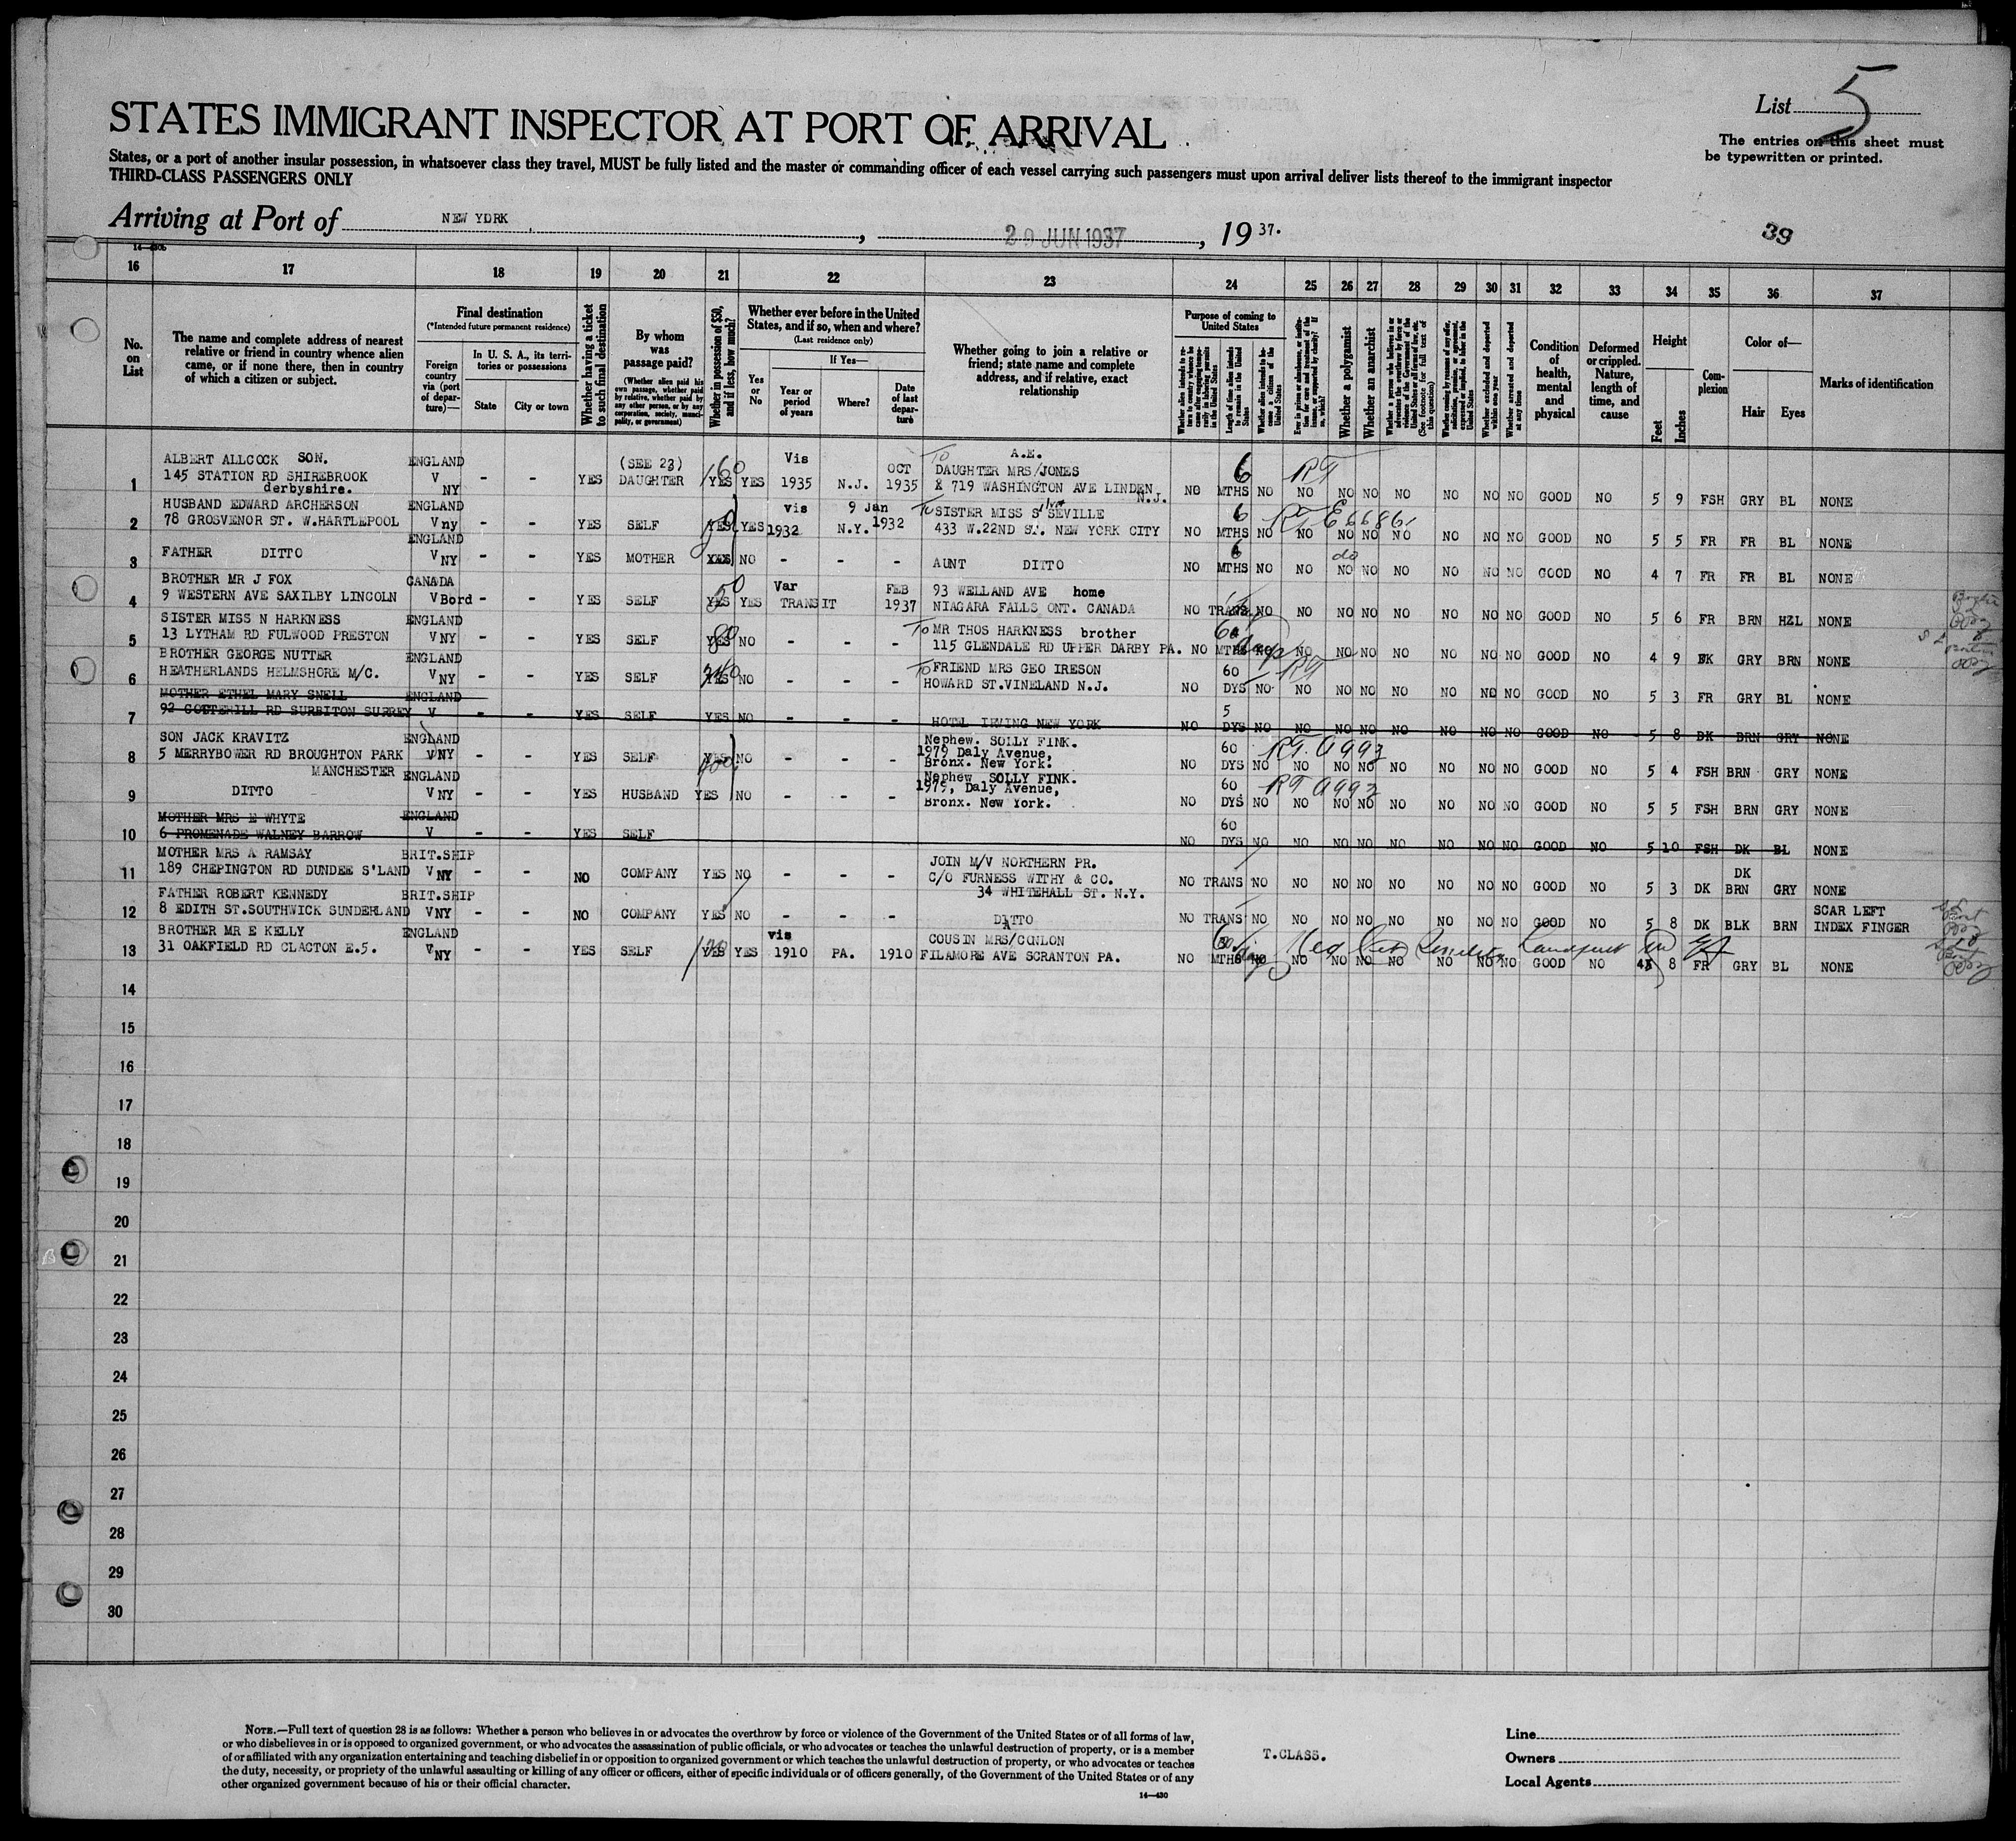 List 5
STATES IMMIGRANT INSPECTOR AT PORT OF ARRIVAL
The entries on this sheet must
be typewritten or printed.
States, or a port of another insular possession, in whatsoever class they travel, MUST be fully listed and the master or commanding officer of each vessel carrying such passengers must upon arrival deliver lists thereof to the immigrant inspector
THIRD-CLASS PASSENGERS ONLY
Arriving at Port of NEW YORK, 20 JUN 1937, 19 37.
39
14—430b
16 17 18 19 20 21 22 23 24 25 26 27 28 29 30 31 32 33 34 35 36 37
No. on List
The name and complete address of nearest relative or friend in country whence alien came, or if none there, then in country of which a citizen or subject.
Final destination
(*Intended future permanent residence)
Foreign country via (port of departure)—
In U. S. A., its territories or possessions
State City or town
Whether having a ticket to such final destination
By whom was passage paid?
(Whether alien paid his own passage, whether paid by relative, whether paid by any other person, or by any corporation, society, municipality, or government)
Whether in possession of $50, and if less, how much?
Whether ever before in the United States, and if so, when and where?
(Last residence only)
Yes or No
If Yes—
Year or period of years Where? Date of last departure
Whether going to join a relative or friend; state name and complete address, and if relative, exact relationship
Purpose of coming to United States
Length of time alien intends to remain in the United States
Whether alien intends to become a citizen of the United States
Whether a polygamist
Whether an anarchist
(See footnote for full text of this question)
Whether excluded and deported within one year
Whether arrested and deported at any time
Condition of health, mental and physical
Deformed or crippled. Nature, length of time, and cause
Height
Feet Inches
Complexion
Color of—
Hair Eyes
Marks of identification
1 ALBERT ALLCOCK SON. 145 STATION RD SHIREBROOK derbyshire. ENGLAND V NY - - YES (SEE 23) DAUGHTER 160 YES YES Vis 1935 N.J. OCT 1935 To A.E. DAUGHTER MRS/JONES 719 WASHINGTON AVE LINDEN N.J. NO 6 MTHS NO RT NO NO NO NO NO NO NO GOOD NO 5 9 FSH GRY BL NONE
2 HUSBAND EDWARD ARCHERSON 78 GROSVENOR ST. W.HARTLEPOOL ENGLAND V ny - - YES SELF YES YES vis 1932 N.Y. 9 Jan 1932 To SISTER MISS S SEVILLE 433 W.22ND ST. NEW YORK CITY NO 6 MTHS NO NO NO NO NO NO NO NO GOOD NO 5 5 FR FR BL NONE
3 FATHER DITTO ENGLAND V NY - - YES MOTHER YES NO - - - AUNT DITTO NO 6 MTHS NO do NO NO NO NO NO NO NO GOOD NO 4 7 FR FR BL NONE
4 BROTHER MR J FOX 9 WESTERN AVE SAXILBY LINCOLN CANADA V Bord - - YES SELF 50 YES YES Var TRANSIT FEB 1937 93 WELLAND AVE home NIAGARA FALLS ONT. CANADA NO TRANS NO NO NO NO NO NO NO NO GOOD NO 5 6 FR BRN HZL NONE
5 SISTER MISS N HARKNESS 13 LYTHAM RD FULWOOD PRESTON ENGLAND V NY - - YES SELF 80 YES NO - - - To MR THOS HARKNESS brother 115 GLENDALE RD UPPER DARBY PA. NO MTHS NO NO NO NO NO NO NO NO GOOD NO 4 9 DK GRY BRN NONE
6 BROTHER GEORGE NUTTER HEATHERLANDS HELMSHORE M/C. ENGLAND V NY - - YES SELF YES NO - - - To FRIEND MRS GEO IRESON HOWARD ST.VINELAND N.J. NO 60 DYS NO RT NO NO NO NO NO NO NO GOOD NO 5 3 FR GRY BL NONE
7 MOTHER ETHEL MARY SNELL 92 COTTERILL RD SURBITON SURREY ENGLAND V - - YES SELF YES NO - - - HOTEL IRVING NEW YORK NO 5 DYS NO NO NO NO NO NO NO NO GOOD NO 5 8 DK BRN GRY NONE
8 SON JACK KRAVITZ 5 MERRYBOWER RD BROUGHTON PARK MANCHESTER ENGLAND V NY - - YES SELF YES NO - - - Nephew. SOLLY FINK. 1979 Daly Avenue, Bronx. New York. NO 60 DYS NO NO NO NO NO NO NO NO GOOD NO 5 4 FSH BRN GRY NONE
9 DITTO ENGLAND V NY - - YES HUSBAND YES NO - - - Nephew SOLLY FINK. 1979, Daly Avenue, Bronx. New York. NO 60 DYS NO NO NO NO NO NO NO NO GOOD NO 5 5 FSH BRN GRY NONE
10 MOTHER MRS E WHYTE 6 PROMENADE WALNEY BARROW ENGLAND V - - YES SELF NO 60 DYS NO NO NO NO NO NO NO NO GOOD NO 5 10 FSH DK BL NONE
11 MOTHER MRS A RAMSAY 189 CHEPINGTON RD DUNDEE S'LAND BRIT.SHIP V NY - - NO COMPANY YES NO - - - JOIN M/V NORTHERN PR. C/O FURNESS WITHY & CO. 34 WHITEHALL ST. N.Y. NO TRANS NO NO NO NO NO NO NO NO GOOD NO 5 3 DK DK BRN GRY NONE
12 FATHER ROBERT KENNEDY 8 EDITH ST.SOUTHWICK SUNDERLAND BRIT.SHIP V NY - - NO COMPANY YES NO - - - DITTO NO TRANS NO NO NO NO NO NO NO NO GOOD NO 5 8 DK BLK BRN SCAR LEFT INDEX FINGER
13 BROTHER MR E KELLY 31 OAKFIELD RD CLACTON E.5. ENGLAND V NY - - YES SELF YES YES vis 1910 PA. 1910 COUSIN MRS/CONLON FILAMORE AVE SCRANTON PA. NO MTHS NO NO NO NO NO NO NO NO GOOD NO 8 FR GRY BL NONE
14
15
16
17
18
19
20
21
22
23
24
25
26
27
28
29
30
NOTE.—Full text of question 28 is as follows: Whether a person who believes in or advocates the overthrow by force or violence of the Government of the United States or of all forms of law,
or who disbelieves in or is opposed to organized government, or who advocates the assassination of public officials, or who advocates or teaches the unlawful destruction of property, or is a member
of or affiliated with any organization entertaining and teaching disbelief in or opposition to organized government or which teaches the unlawful destruction of property, or who advocates or teaches
the duty, necessity, or propriety of the unlawful assaulting or killing of any officer or officers, either of specific individuals or of officers generally, of the Government of the United States or of any
other organized government because of his or their official character.
14—430
T.CLASS.
Line
Owners
Local Agents